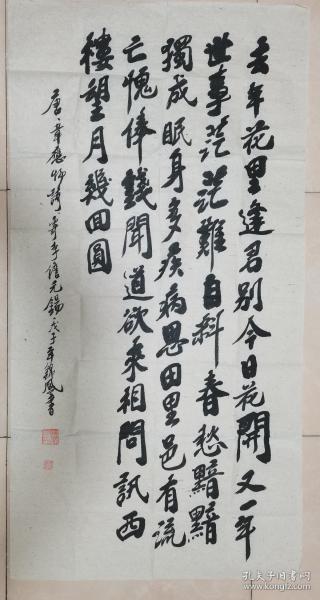 去年花里逢君别今日花開又一年
世事茫茫難自料春愁黯黯
獨成眠身多疾病思田里邑有流
亡愧俸錢聞道欲来相問訊西
樓望月幾回圓
唐韋應物詩寄李儋元錫戊子年
孔夫子旧书网